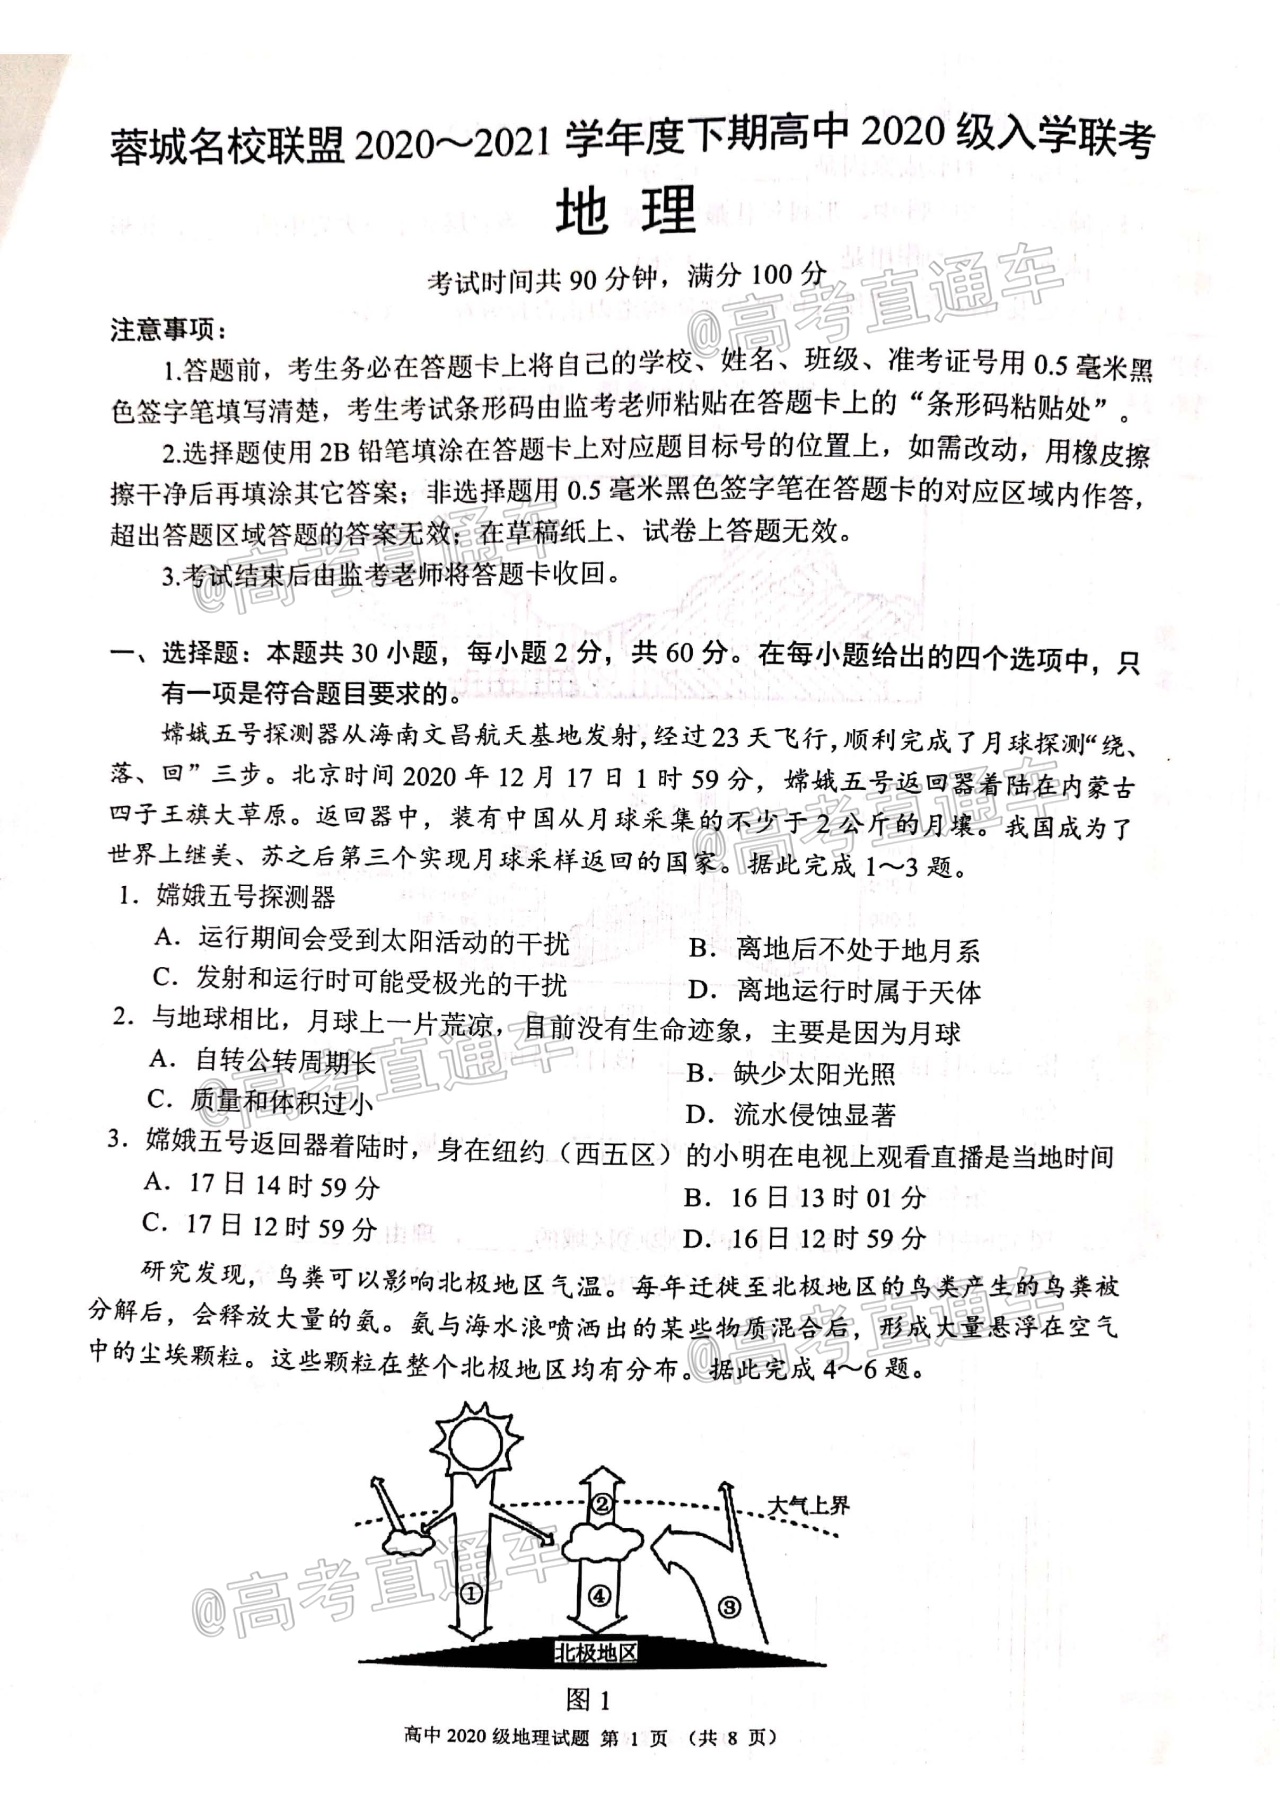 蓉城名校联盟2020～2021学年度下期高中2020级入学联考
地 理
考试时间共90分钟，满分100分
注意事项：
1.答题前，考生务必在答题卡上将自己的学校、姓名、班级、准考证号用0.5毫米黑
色签字笔填写清楚，考生考试条形码由监考老师粘贴在答题卡上的“条形码粘贴处”。
2.选择题使用2B铅笔填涂在答题卡上对应题目标号的位置上，如需改动，用橡皮擦
擦干净后再填涂其它答案；非选择题用0.5毫米黑色签字笔在答题卡的对应区域内作答，
超出答题区域答题的答案无效；在草稿纸上、试卷上答题无效。
3.考试结束后由监考老师将答题卡收回。
一、选择题：本题共30小题，每小题2分，共60分。在每小题给出的四个选项中，只
有一项是符合题目要求的。
嫦娥五号探测器从海南文昌航天基地发射，经过23天飞行，顺利完成了月球探测“绕、
落、回”三步。北京时间2020年12月17日1时59分，嫦娥五号返回器着陆在内蒙古
四子王旗大草原。返回器中，装有中国从月球采集的不少于2公斤的月壤。我国成为了
世界上继美、苏之后第三个实现月球采样返回的国家。据此完成1～3题。
1．嫦娥五号探测器
A．运行期间会受到太阳活动的干扰 B．离地后不处于地月系
C．发射和运行时可能受极光的干扰 D．离地运行时属于天体
2．与地球相比，月球上一片荒凉，目前没有生命迹象，主要是因为月球
A．自转公转周期长 B．缺少太阳光照
C．质量和体积过小 D．流水侵蚀显著
3．嫦娥五号返回器着陆时，身在纽约（西五区）的小明在电视上观看直播是当地时间
A．17日14时59分 B．16日13时01分
C．17日12时59分 D．16日12时59分
研究发现，鸟粪可以影响北极地区气温。每年迁徙至北极地区的鸟类产生的鸟粪被
分解后，会释放大量的氨。氨与海水浪喷洒出的某些物质混合后，形成大量悬浮在空气
中的尘埃颗粒。这些颗粒在整个北极地区均有分布。据此完成4～6题。
大气上界
①
②
③
④
北极地区
图1
高中2020级地理试题 第 1 页 （共 8 页）
@高考直通车
@高考直通车
@高考直通车
@高考直通车
@高考直通车
@高考直通车